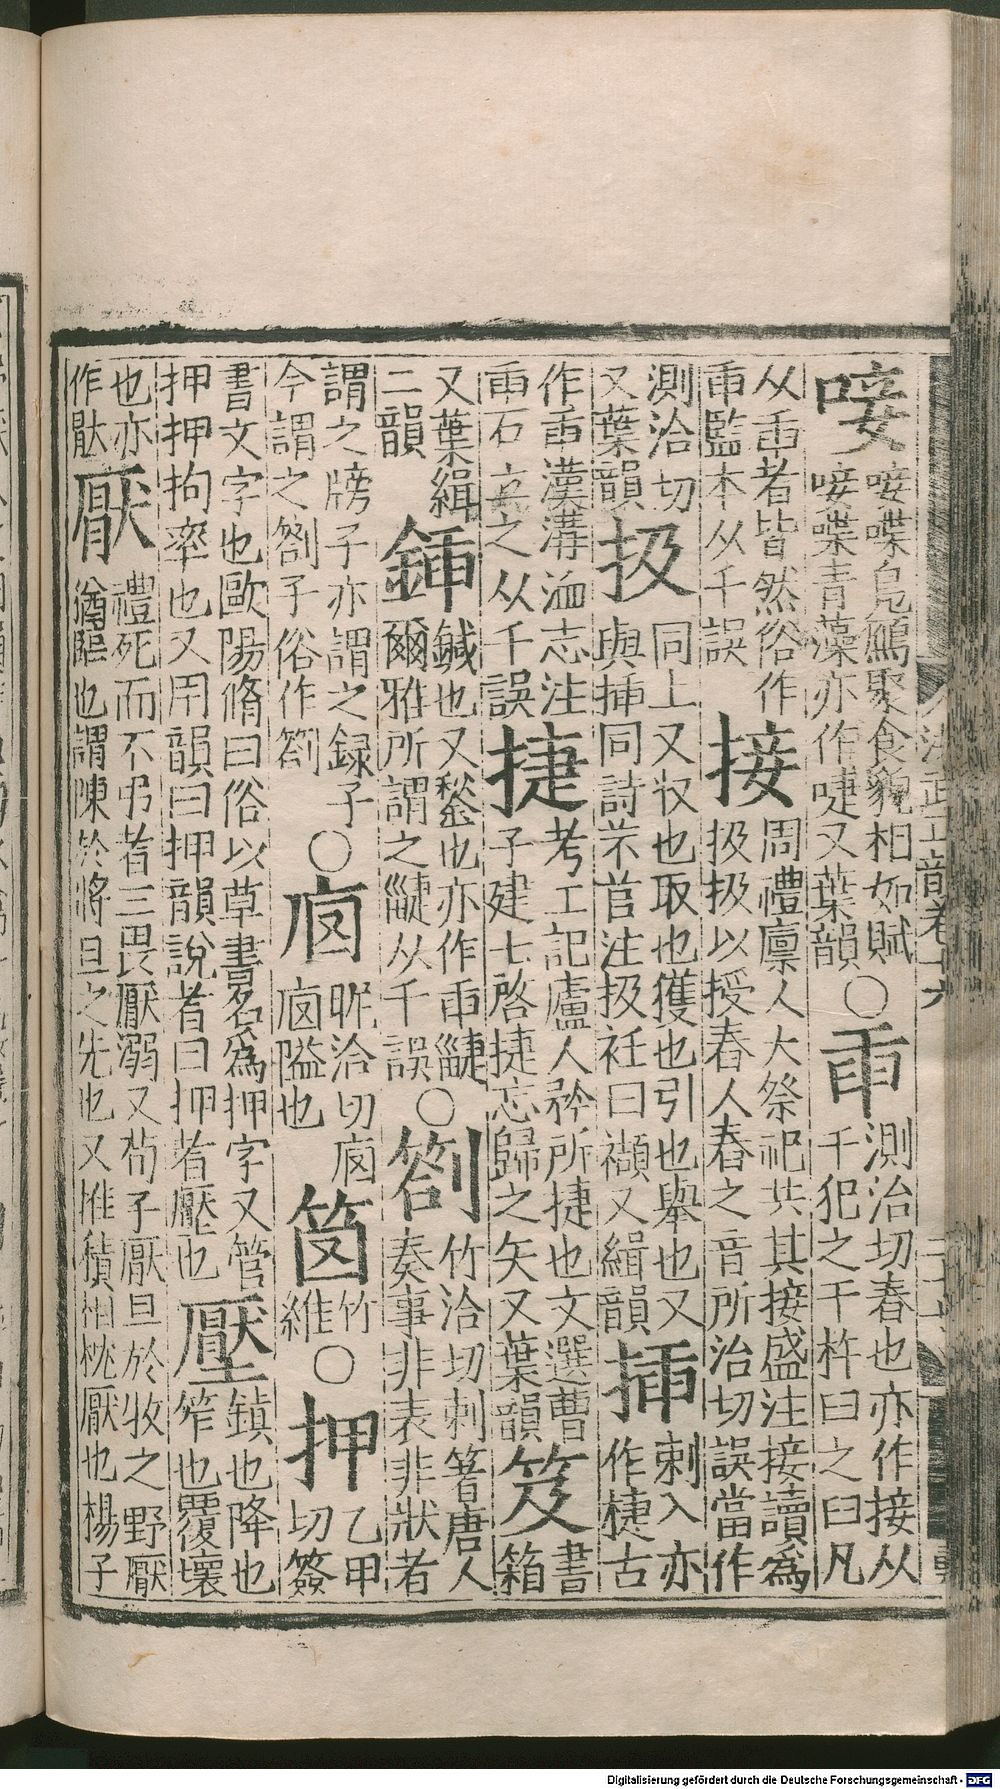 唼唼喋鳧鴈聚食貌相如賦唼喋菁藻亦作啑又葉韻〇臿測洽切舂也亦作接从千犯之干杵曰之臼凡
从臿者皆然俗作臿監本从千誤接周禮廩人大祭祀共其接盛注接讀爲扱扱以授舂人舂之音所洽切誤當作
測洽切又葉韻扱同上又收也取也獲也引也舉也又與插同詩芣苢注扱衽曰襭又緝韻插刺入亦作捷古
作臿漢溝洫志注臿石立之从千誤捷考工記廬人矜所捷也文選曹子建七啓捷忘歸之矢又葉韻笈書箱
又葉緝二韻鍤鍼也又鍫也亦作臿爾雅所謂之从千誤〇劄竹洽切刺箸唐人奏事非表非狀者
謂之牓子亦謂之録子今謂之劄子俗作劄〇㡱昵洽切㡱㡱隘也䇶竹維〇押乙甲切簽
書文字也歐陽脩曰俗以草書名爲押字又管押押拘率也又用韻曰押韻說者曰押者壓也壓鎮也降也笮也覆壞
也亦作厭厭禮死而不弔者三畏厭溺又荀子厭旦於牧之野厭也謂陳於將旦之先也又推積厭也楊子
洪武正韻卷十六
Digitalisierung gefördert durch die Deutsche Forschungsgemeinschaft - DFG